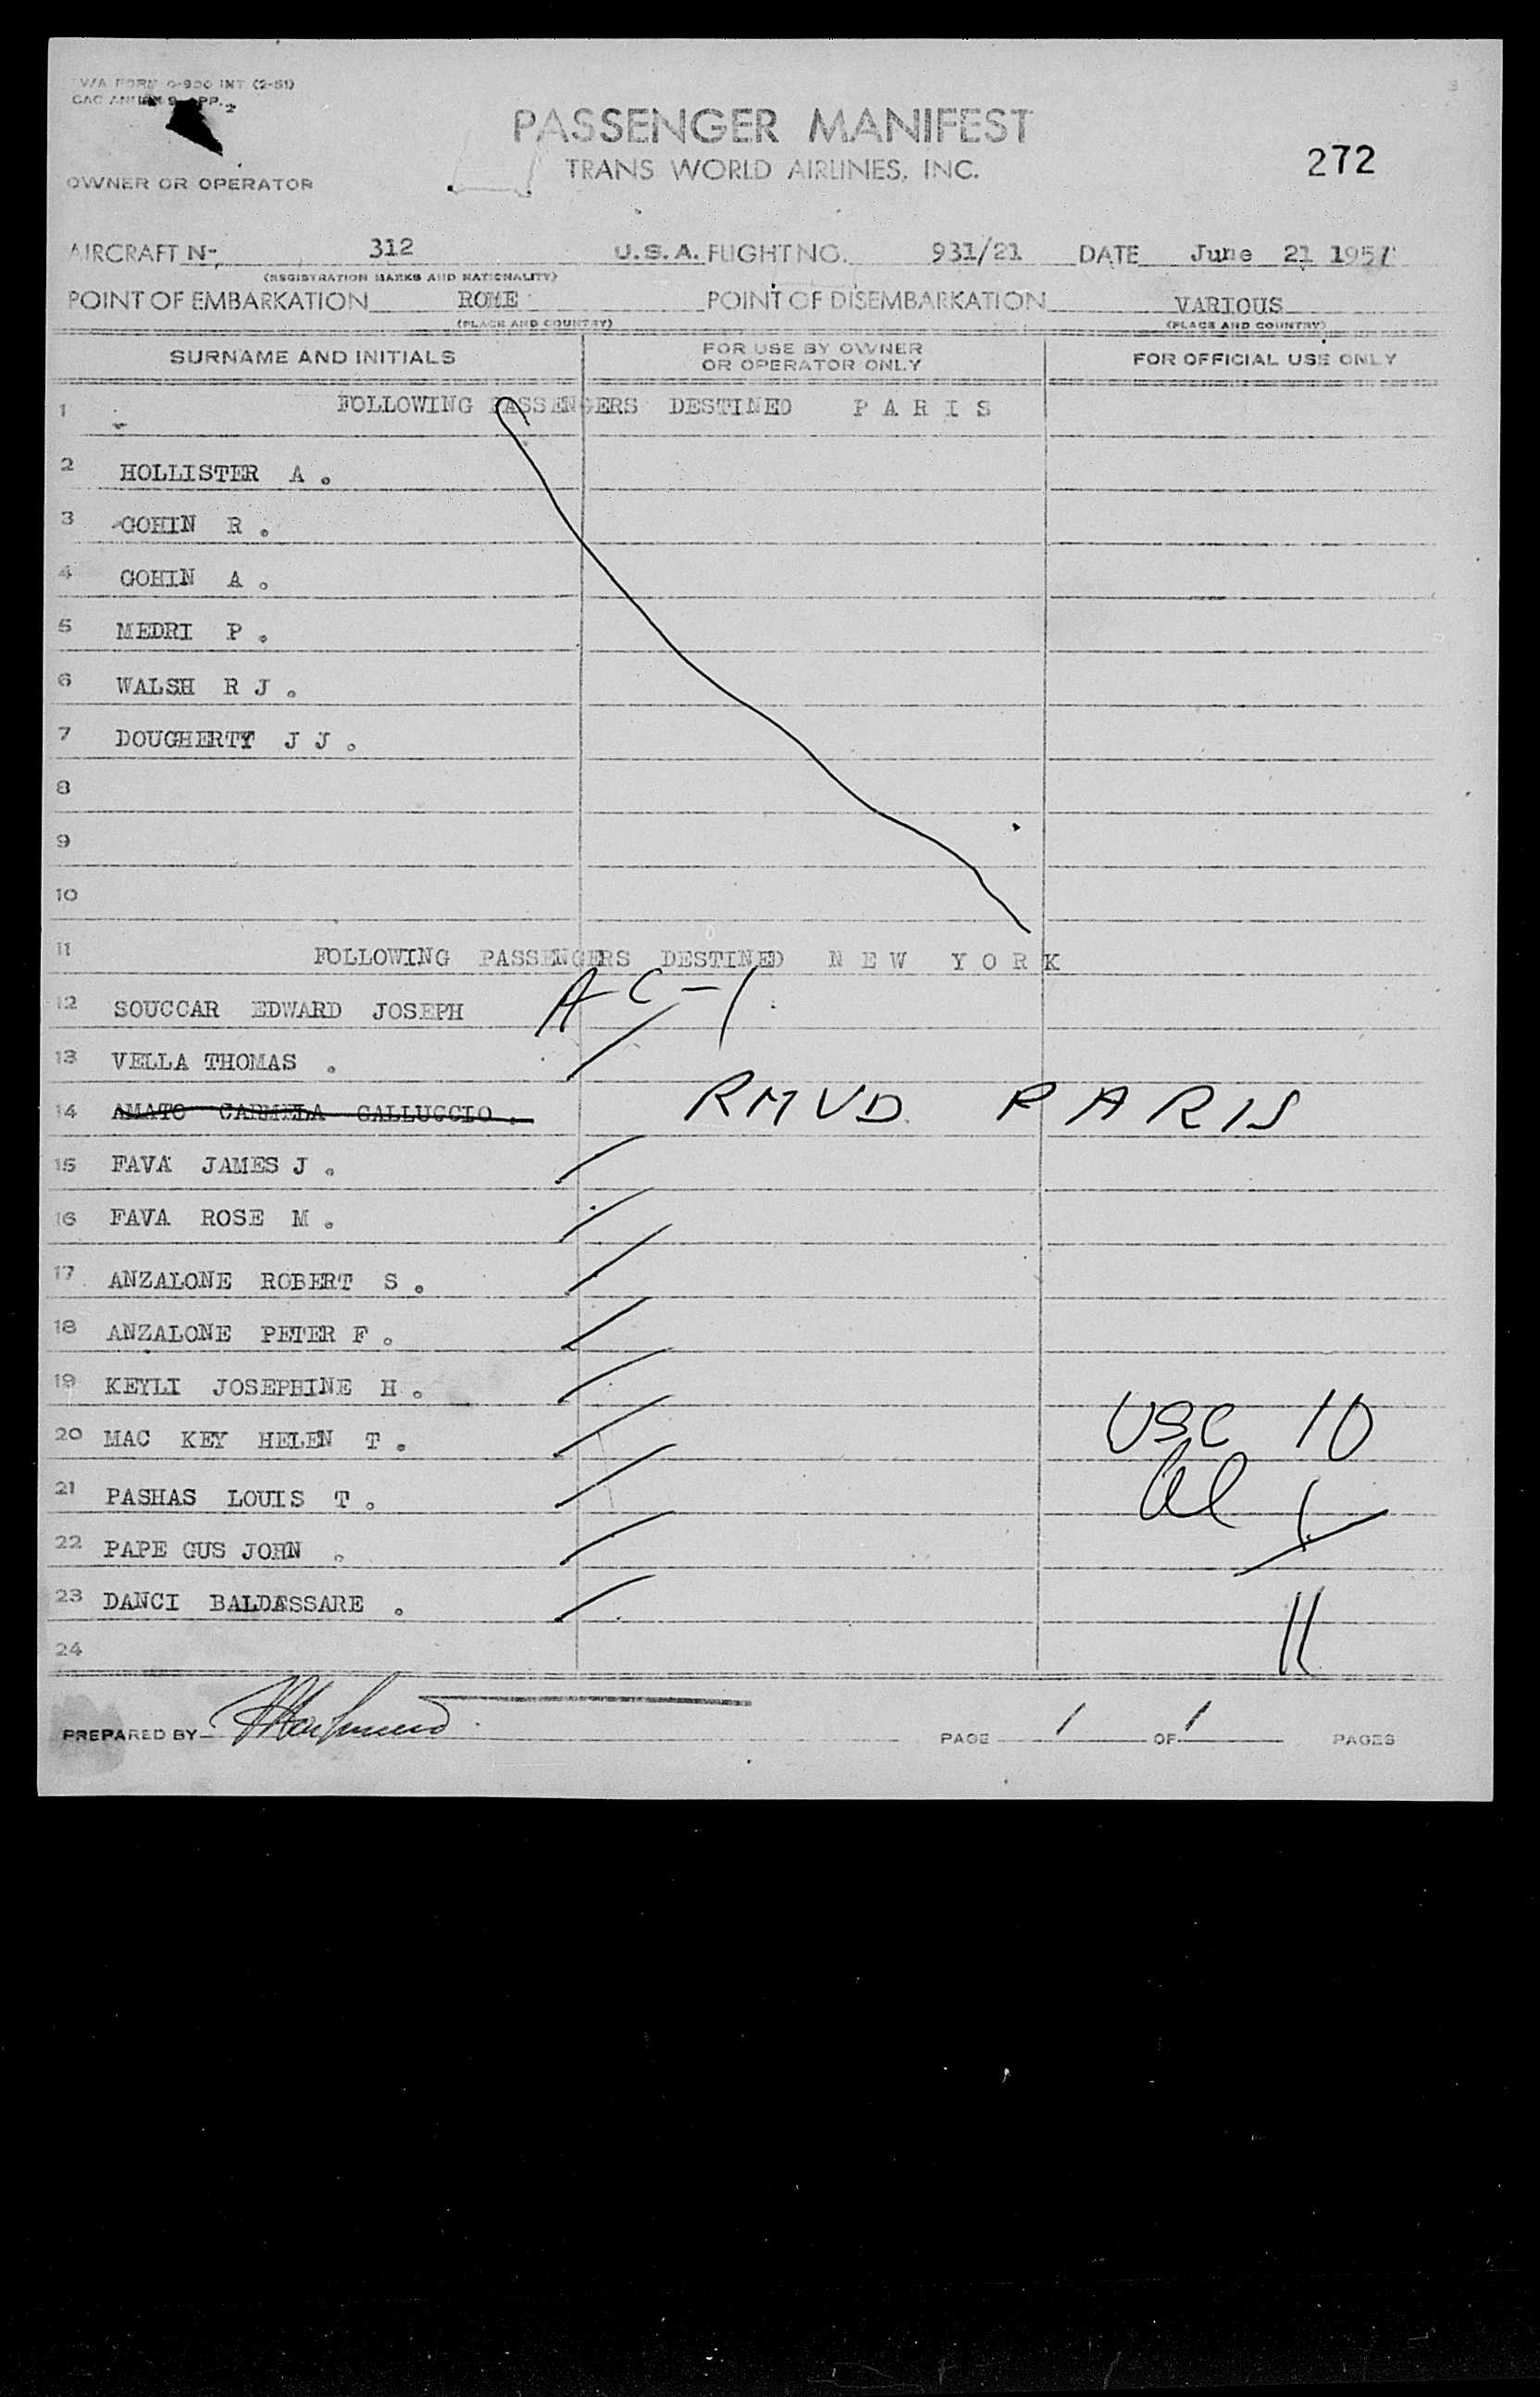 TWA FORM 0-900 INT (2-51)
CAO ANNEX 9 APP. 2
PASSENGER MANIFEST
TRANS WORLD AIRLINES, INC.
272
OWNER OR OPERATOR
AIRCRAFT N- 312 U.S.A. FLIGHT NO. 931/21 DATE June 21 1951
(REGISTRATION MARKS AND NATIONALITY)
POINT OF EMBARKATION ROME POINT OF DISEMBARKATION VARIOUS
(PLACE AND COUNTRY) (PLACE AND COUNTRY)
SURNAME AND INITIALS FOR USE BY OWNER OR OPERATOR ONLY FOR OFFICIAL USE ONLY
1 FOLLOWING PASSENGERS DESTINED P A R I S
2 HOLLISTER A .
3 GOHIN R .
4 GOHIN A .
5 MEDRI P .
6 WALSH R J .
7 DOUGHERTY J J .
8
9
10
11 FOLLOWING PASSENGERS DESTINED N E W Y O R K
12 SOUCCAR EDWARD JOSEPH AC-1
13 VELLA THOMAS .
14 AMATO CARMELA GALLUCCIO . RMVD PARIS
15 FAVA JAMES J .
16 FAVA ROSE M .
17 ANZALONE ROBERT S .
18 ANZALONE PETER F .
19 KEYLI JOSEPHINE H .
20 MAC KEY HELEN T . USC 10
21 PASHAS LOUIS T . al 1
22 PAPE GUS JOHN .
23 DANCI BALDASSARE . 11
24
PREPARED BY PAGE 1 OF 1 PAGES